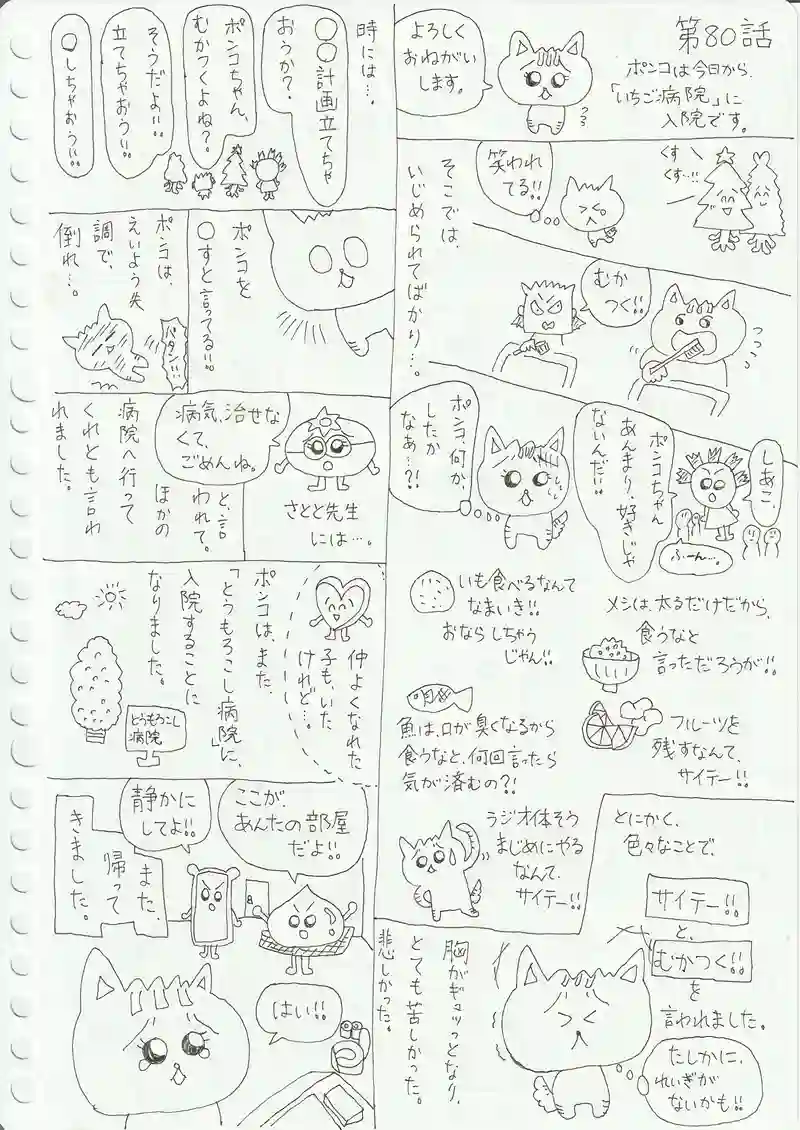 第80話
ポンコは今日から、
「いちご病院」に
入院です。
よろしく
おねがい
します。
くす
くす…!!
笑われ
てる!!
そこでは、
いじめられてばかり…。
むか
つく!!
しあこ、
ポンコちゃん
あんまり、好きじゃ
ないんだ!!
ふーん…。
ポンコ、何か、
したか
なぁ…?!
メシは、太るだけだから、
食うなと
言っただろうが!!
いも食べるなんて
なまいき!!
おならしちゃう
じゃん!!
フルーツを
残すなんて、
サイテー!!
魚は、口が臭くなるから
食うなと、何回言ったら
気が済むの?!
ラジオ体そう
まじめにやる
なんて、
サイテー!!
とにかく、
色々なことで、
サイテー!!
と、
むかつく!!
を
言われました。
たしかに、
れいぎが
ないかも!!
胸がギュッとなり、
とても苦しかった。
悲しかった。
時には…。
〇〇計画立てちゃ
おうか?
ポンコちゃん、
むかつくよね?
そうだよ!!
立てちゃおう!!
〇しちゃおう!!
ポンコを
〇すと言ってる!!
ポンコは、
えいよう失
調で、
倒れ…。
バタン!!
さとと先生
には…。
病気、治せな
くて、
ごめんね。
と、言
われて。
ほかの
病院へ行って
くれとも言わ
れました。
仲よくなれた
子も、いた
けれど…。
ポンコは、また、
「とうもろこし病院」に、
入院することに
なりました。
とうもろこし
病院
ここが、
あんたの部屋
だよ!!
静かに
してよ!!
また、
帰って
きました。
はい!!